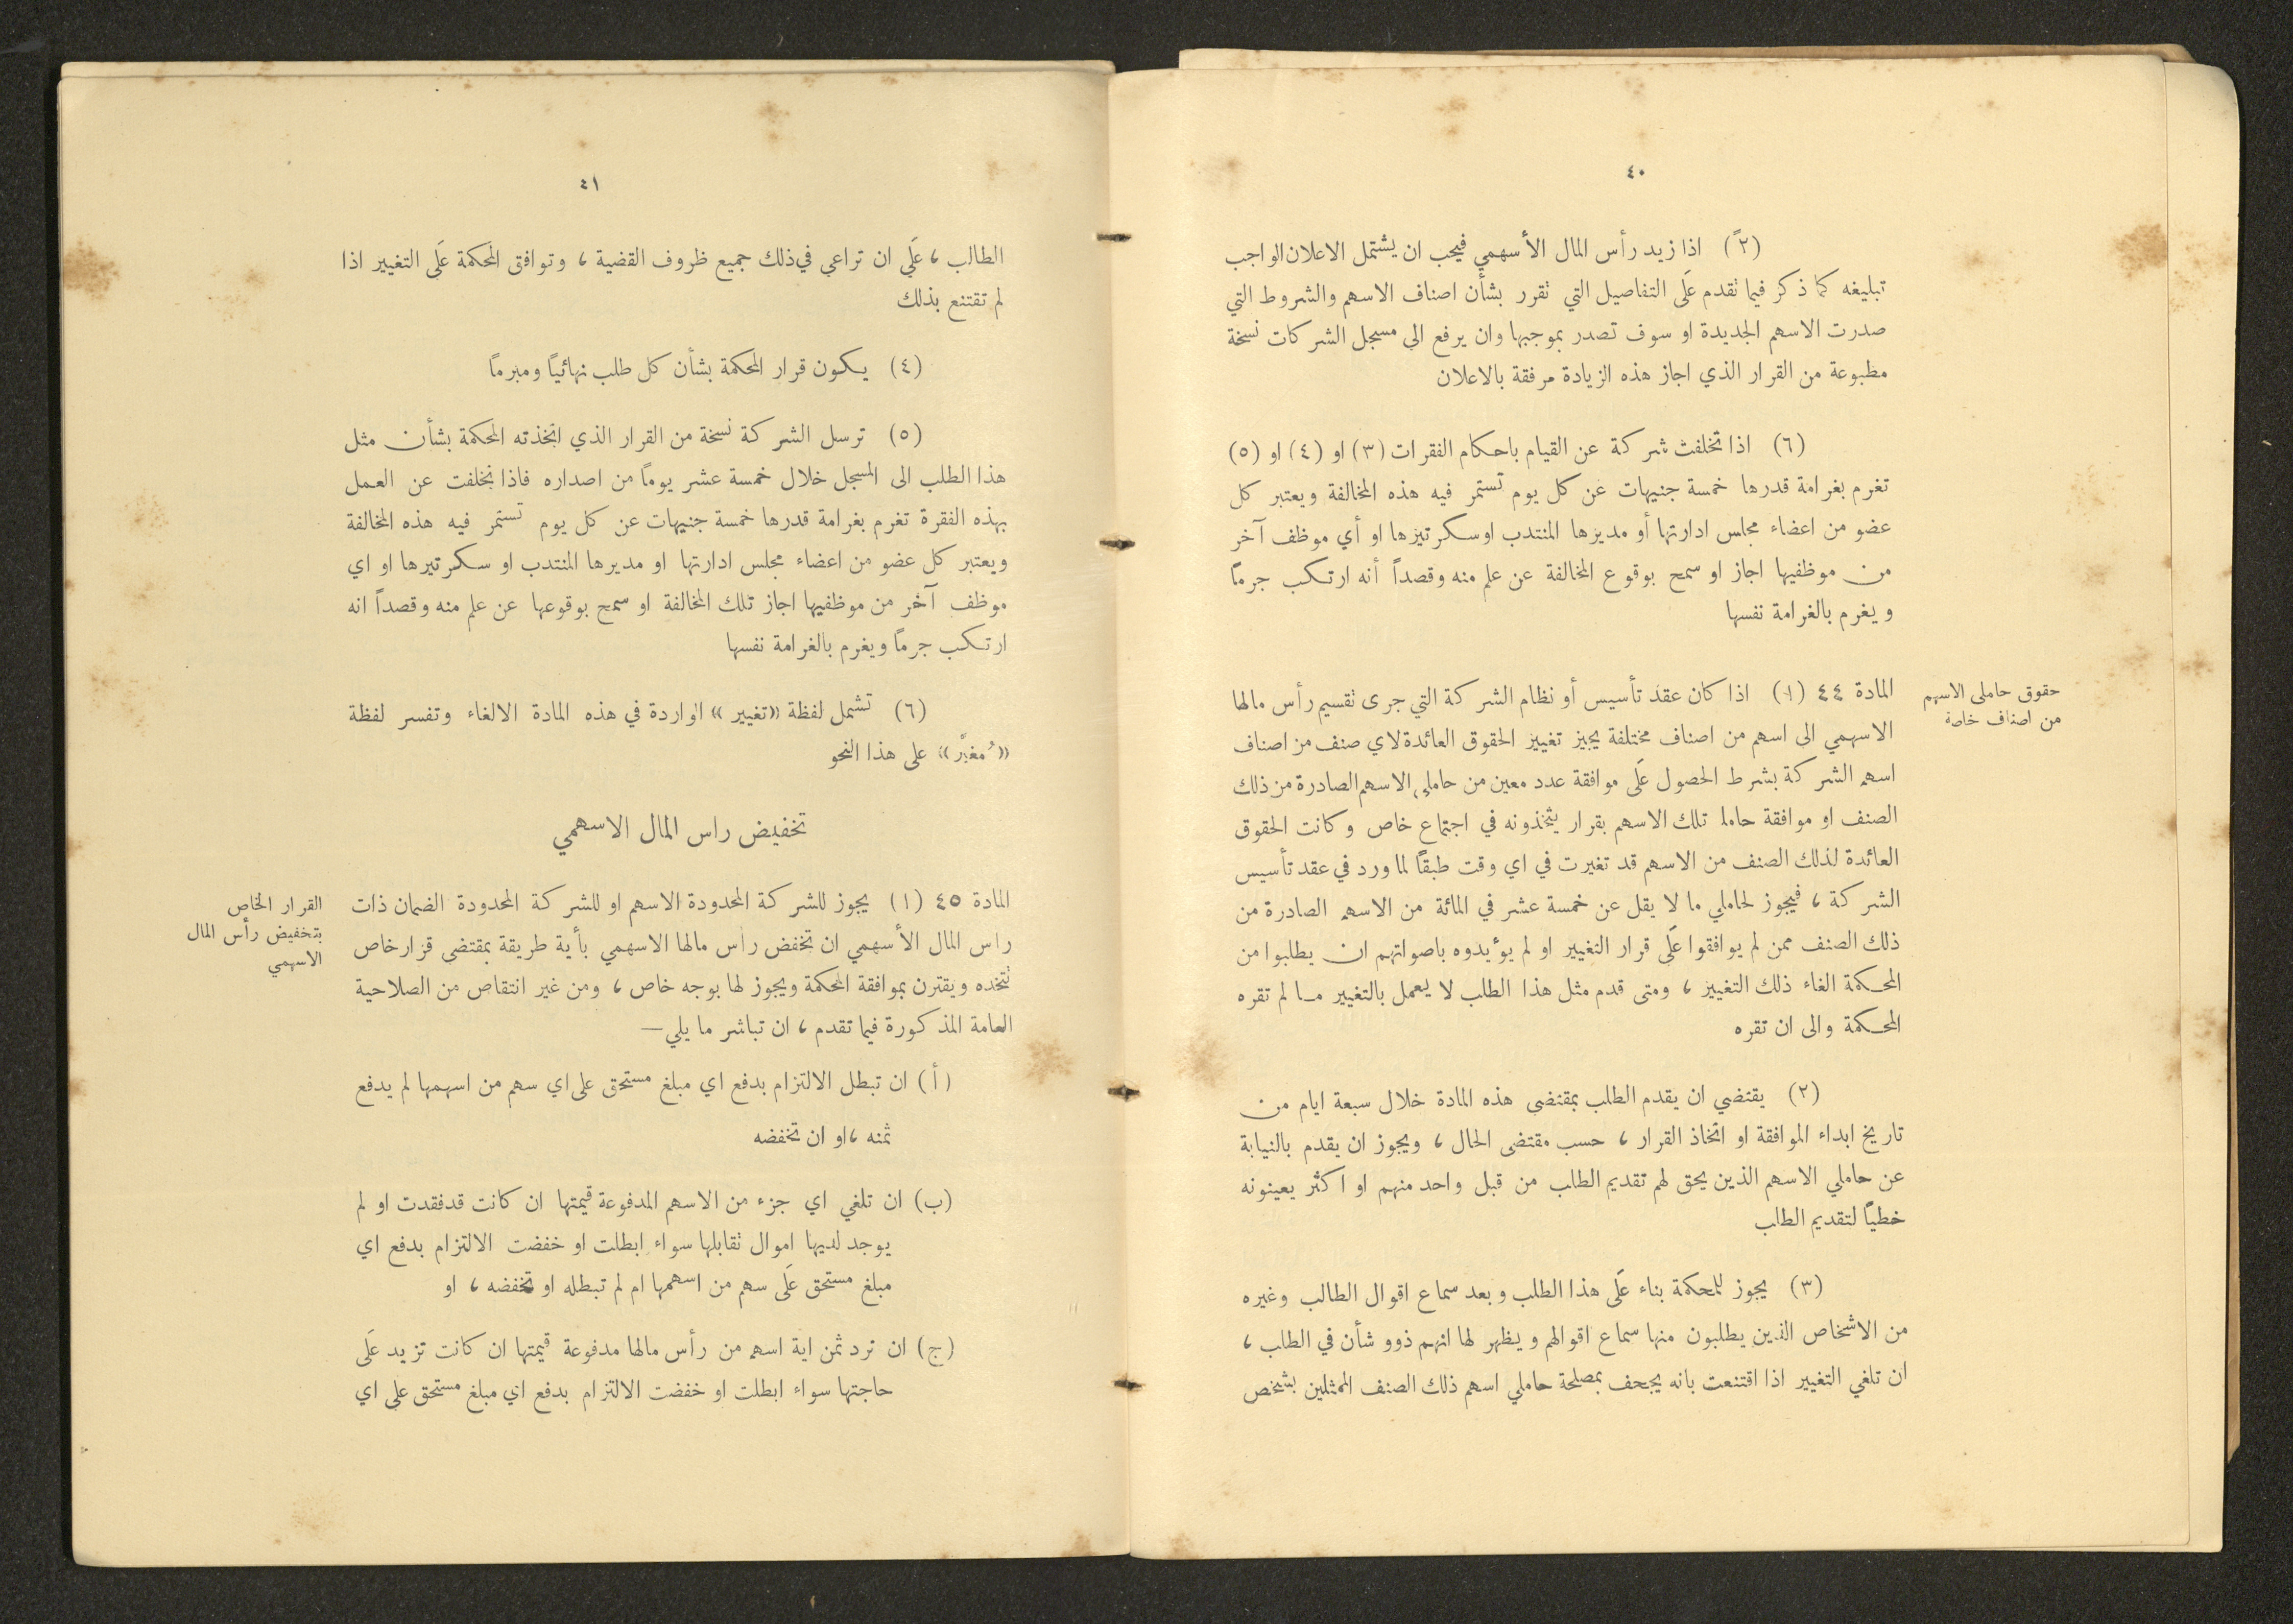 ٤٠
(٢ً) اذا زيد رأس المال الأسهمي فيجب ان يشتمل الاعلان الواجب
تبليغه كما ذكر فيما تقدم عَلَى التفاصيل التي تقرر بشأن اصناف الاسهم والشروط التي
صدرت الاسهم الجديدة او سوف تصدر بموجبها وان يرفع الى مسجل الشركات نسخة
مطبوعة من القرار الذي اجاز هذه الزيادة مرفقة بالاعلان
(٦) اذا تخلفت شركة عن القيام باحكام الفقرات (٣) او (٤) او (٥)
تغرم بغرامة قدرها خمسة جنيهات عن كل يوم تستمر فيه هذه المخالفة ويعتبر كل
عضو من اعضاء مجلس ادارتها أو مديرها المنتدب او سكرتيرها او أي موظف آخر
من موظفيها اجاز او سمح بوقوع المخالفة عن علم منه وقصداً أنه ارتكب جرماً
ويغرم بالغرامة نفسها
حقوق حاملي الاسهم
من اصناف خاصة
المادة ٤٤ (١) اذا كان عقد تأسيس أو نظام الشركة التي جرى تقسيم رأس مالها
الاسهمي الى اسهم من اصناف مختلفة يجيز تغيير الحقوق العائدة لاي صنف من اصناف
اسهم الشركة بشرط الحصول عَلَى موافقة عدد معين من حاملي الاسهم الصادرة من ذلك
الصنف او موافقة حاملي تلك الاسهم بقرار يتخذونه في اجتماع خاص وكانت الحقوق
العائدة لذلك الصنف من الاسهم قد تغيرت في اي وقت طبقاً لما ورد في عقد تأسيس
الشركة ، فيجوز لحاملي ما لا يقل عن خمسة عشر في المائة من الاسهم الصادرة من
ذلك الصنف ممن لم يوافقوا عَلَى قرار التغيير او لم يؤيدوه باصواتهم ان يطلبوا من
المحكمة الغاء ذلك التغيير ، ومتى قدم مثل هذا الطلب لا يعمل بالتغيير ما لم تقره
المحكمة والى ان تقره
(٢) يقتضي ان يقدم الطلب بمقتضى هذه المادة خلال سبعة ايام من
تاريخ ابداء الموافقة او اتخاذ القرار ، حسب مقتضى الحال ، ويجوز ان يقدم بالنيابة
عن حاملي الاسهم الذين يحق لهم تقديم الطلب من قبل واحد منهم او اكثر يعينونه
خطياً لتقديم الطلب
(٣) يجوز للمحكمة بناء عَلَى هذا الطلب وبعد سماع اقوال الطالب وغيره
من الاشخاص الذين يطلبون منها سماع اقوالهم ويظهر لها انهم ذوو شأن في الطلب ،
ان تلغي التغيير اذا اقتنعت بانه يجحف بمصلحة حاملي اسهم ذلك الصنف الممثلين بشخص
٤١
الطالب ، عَلَى ان تراعي في ذلك جميع ظروف القضية ، وتوافق المحكمة عَلَى التغيير اذا
لم تقتنع بذلك
(٤) يكون قرار المحكمة بشأن كل طلب نهائياً ومبرماً
(٥) ترسل الشركة نسخة من القرار الذي اتخذته المحكمة بشأن مثل
هذا الطلب الى المسجل خلال خمسة عشر يوماً من اصداره فاذا تخلفت عن العمل
بهذه الفقرة تغرم بغرامة قدرها خمسة جنيهات عن كل يوم تستمر فيه هذه المخالفة
ويعتبر كل عضو من اعضاء مجلس ادارتها او مديرها المنتدب او سكرتيرها او اي
موظف آخر من موظفيها اجاز تلك المخالفة او سمح بوقوعها عن علم منه وقصداً انه
ارتكب جرماً ويغرم بالغرامة نفسها
(٦) تشمل لفظة «تغيير» الواردة في هذه المادة الالغاء وتفسر لفظة
«مُغيَّر» على هذا النحو
تخفيض راس المال الاسهمي
القرار الخاص
بتخفيض رأس المال
الاسهمي
المادة ٤٥ (١) يجوز للشركة المحدودة الاسهم او للشركة المحدودة الضمان ذات
راس المال الأسهمي ان تخفض راس مالها الاسهمي بأية طريقة بمقتضى قرار خاص
تتخده ويقترن بموافقة المحكمة ويجوز لها بوجه خاص ، ومن غير انتقاص من الصلاحية
العامة المذكورة فيما تقدم ، ان تباشر ما يلي —
(أ) ان تبطل الالتزام بدفع اي مبلغ مستحق على اي سهم من اسهمها لم يدفع
ثمنه ، او ان تخفضه
(ب) ان تلغي اي جزء من الاسهم المدفوعة قيمتها ان كانت قد فقدت او لم
يوجد لديها اموال تقابلها سواء ابطلت او خفضت الالتزام بدفع اي
مبلغ مستحق عَلَى سهم من اسهمها ام لم تبطله او تخفضه ، او
(ج) ان ترد ثمن اية اسهم من رأس مالها مدفوعة قيمتها ان كانت تزيد عَلَى
حاجتها سواء ابطلت او خفضت الالتزام بدفع اي مبلغ مستحق على اي